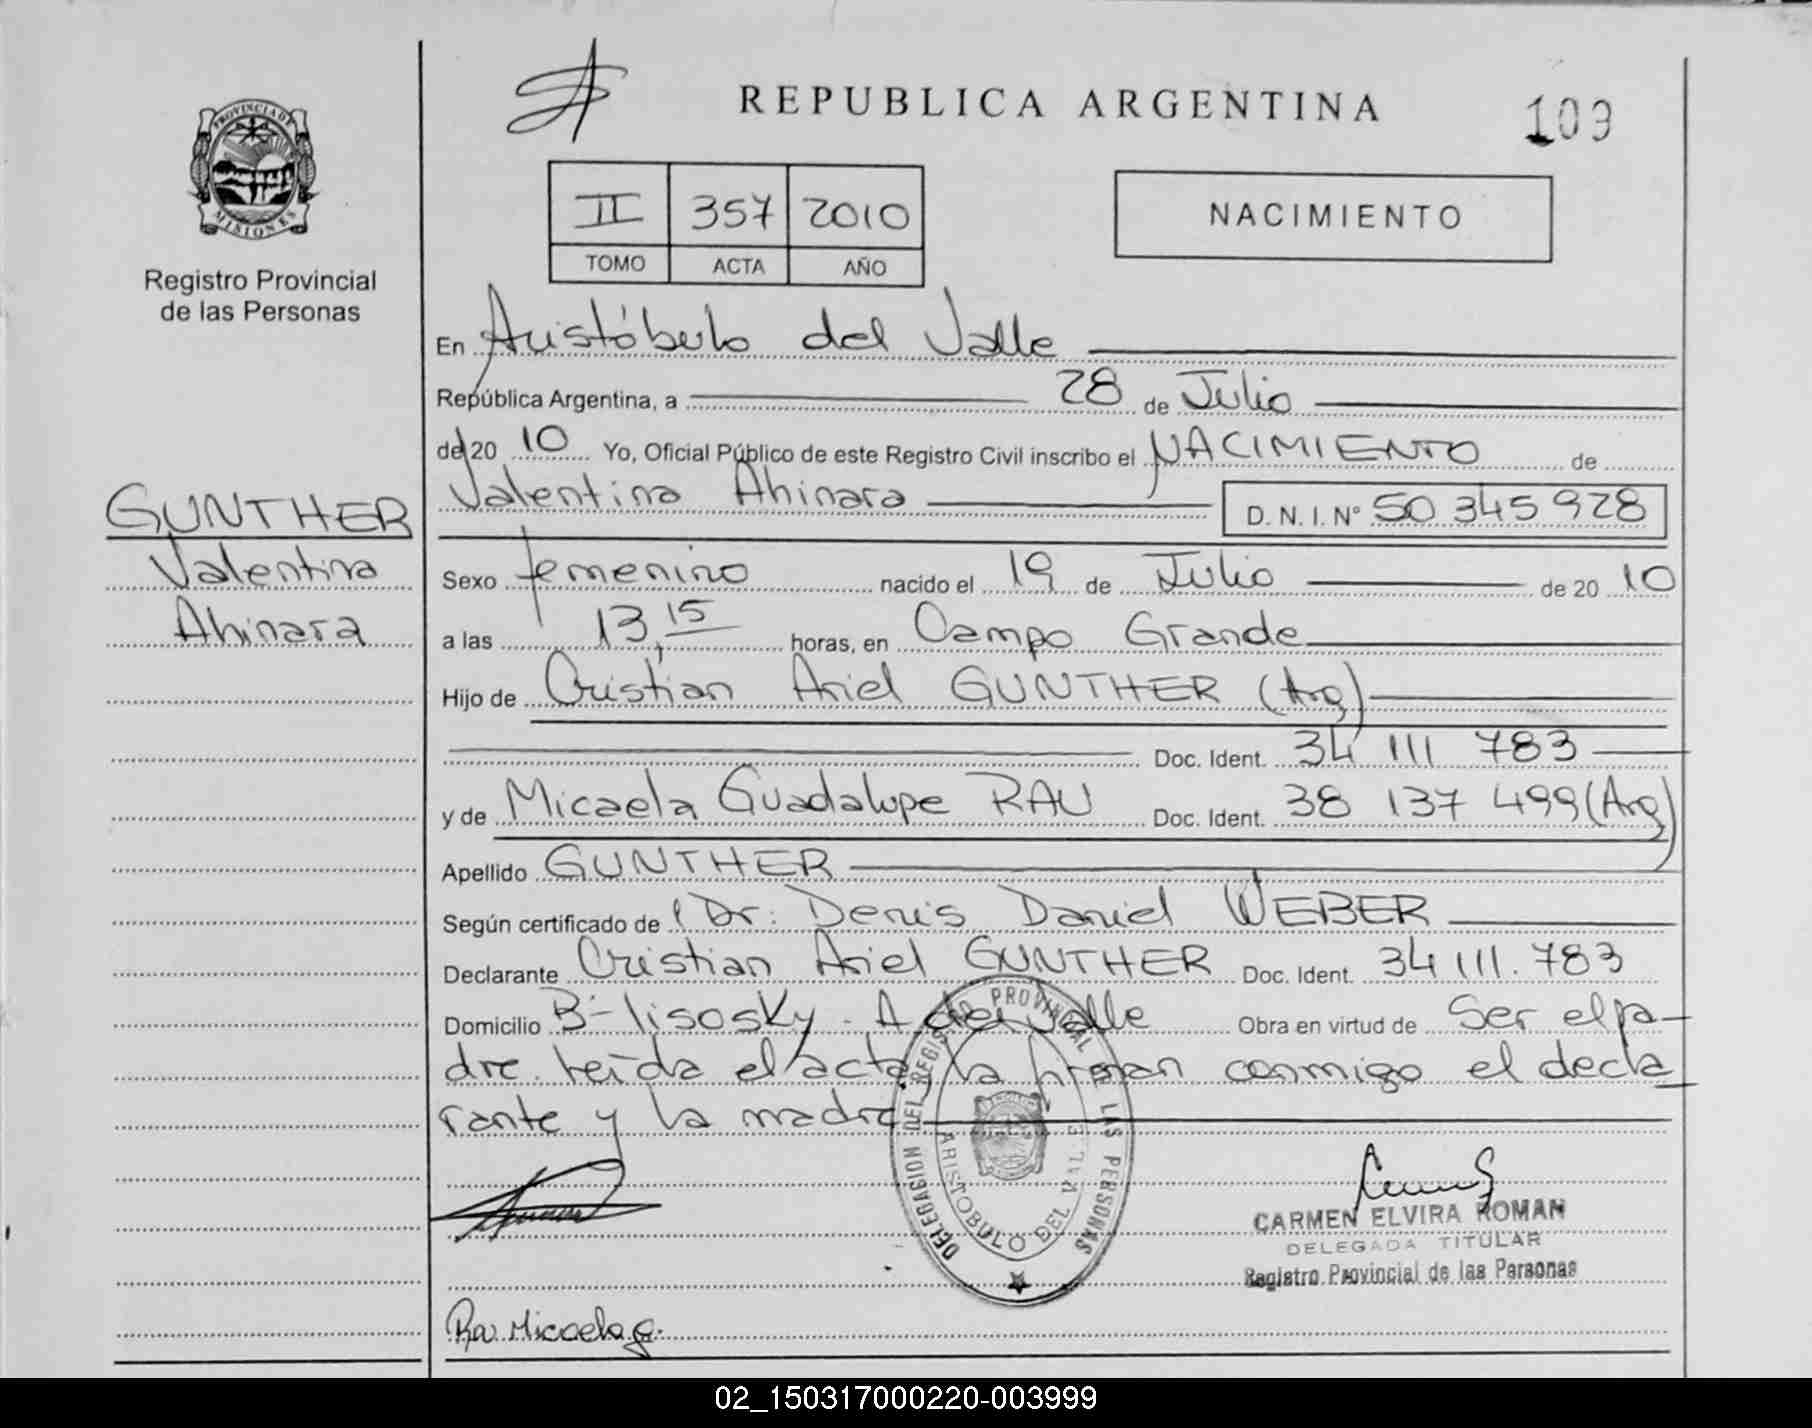 REPUBLICA ARGENTINA
109
PROVINCIA DE
MISIONES
Registro Provincial
de las Personas
II 357 2010
TOMO ACTA AÑO
NACIMIENTO
En Aristóbulo del Valle
República Argentina, a 28 de Julio
de 20 10 Yo, Oficial Público de este Registro Civil inscribo el NACIMIENTO de
Valentina Ahinara D. N. I. Nº 50 345 928
GUNTHER
Valentina
Ahinara
Sexo femenino nacido el 19 de Julio de 20 10
a las 13,15 horas, en Campo Grande
Hijo de Cristian Ariel GUNTHER (Arg)
Doc. Ident. 34 111 783
y de Micaela Guadalupe RAU Doc. Ident. 38 137 499 (Arg)
Apellido GUNTHER
Según certificado de Dr: Denis Daniel WEBER
Declarante Cristian Ariel GUNTHER Doc. Ident. 34 111.783
Domicilio Bº lisosky - A del Valle Obra en virtud de Ser el pa-
dre. leída el acta, la firman conmigo el decla
rante y la madre
DELEGACION DEL REGISTRO PROVINCIAL DE LAS PERSONAS
ARISTOBULO DEL VALLE
CARMEN ELVIRA ROMAN
DELEGADA TITULAR
Registro Provincial de las Personas
Rau Micaela g.
02_150317000220-003999